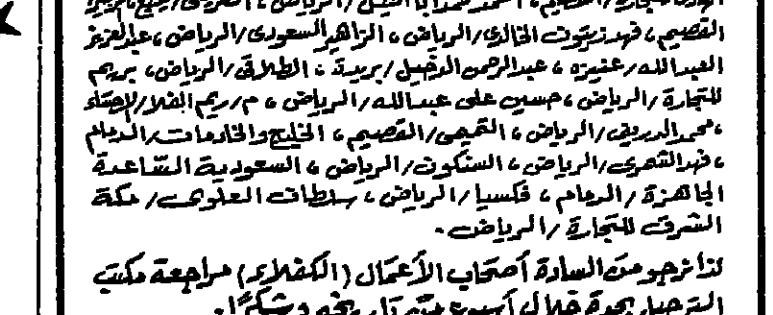 القصيم، فهد زيتون الخالدي/الرياض، الزاهر السعودي/الرياض، عبدالعزيز
العبدالله/عنيزه، عبدالرحمن الدخيل/بريدة، الطلاقي/الرياض، بريهم
للتجارة/الرياض، حسين علي عبدالله/الرياض، م/ريم الملا/الإحساء
، محمد الدريبي/الرياض، التميمي/القصيم، الخليج والخادمات/الدمام
، فهد الشمري/الرياض، السنكوت/الرياض، السعودية الساعدية
الجاهزة/الدمام، فكسيا/الرياض، سلطان العلوي/مكة
الشرق للتجارة/الرياض.
لذا نرجو من السادة أصحاب الأعمال (الكفلاء) مراجعة مكتب
الترحيل بجدة خلال أسبوع من تاريخه وشكرًا.